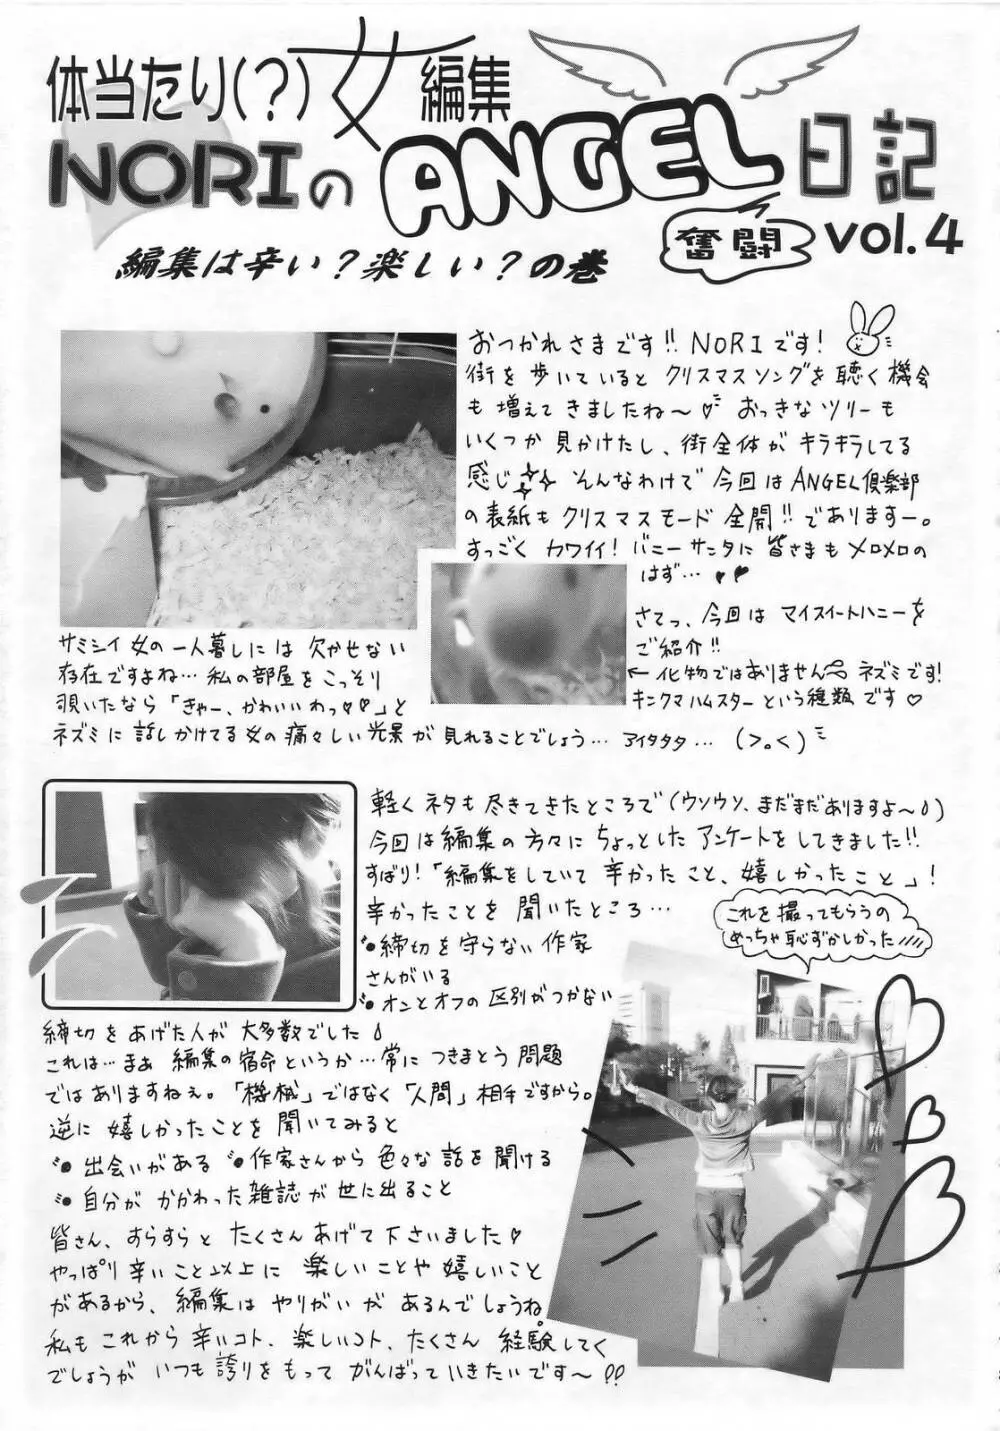 体当たり(?)女編集
NORIのANGEL日記
奮闘
vol.4
編集は辛い?楽しい?の巻
おつかれさまです!! NORIです!
街を歩いていると クリスマスソングを聴く機会
も増えてきましたね〜♡ おっきなツリーも
いくつか見かけたし、街全体がキラキラしてる
感じ✧✧ そんなわけで今回はANGEL倶楽部
の表紙もクリスマスモード全開!!でありますー。
すっごくカワイイ!バニーサンタに皆さまもメロメロの
はず…♥♥
さてっ、今回はマイスイートハニーを
ご紹介!!
←化物ではありません ネズミです!
キンクマハムスターという種類です♡
サミシイ女の一人暮しには欠かせない
存在ですよね…私の部屋をこっそり
覗いたなら「きゃー、かわいいわっ♡♡」と
ネズミに話しかけてる女の痛々しい光景が見れることでしょう…アイタタタ…(>。<)
軽くネタも尽きてきたところで(ウソウソ、まだまだありますよ〜)
今回は編集の方々にちょっとしたアンケートをしてきました!!
ずばり!「編集をしていて辛かったこと、嬉しかったこと」!
辛かったことを聞いたところ…
•締切を守らない作家
さんがいる
•オンとオフの区別がつかない
これを撮ってもらうの
めっちゃ恥ずかしかった////
締切をあげた人が大多数でした
これは…まぁ編集の宿命というか…常につきまとう問題
ではありますねぇ。「機械」ではなく「人間」相手ですから。
逆に嬉しかったことを聞いてみると
•出会いがある •作家さんから色々な話を聞ける
•自分がかかわった雑誌が世に出ること
皆さん、すらすらとたくさんあげて下さいました♡
やっぱり辛いこと以上に楽しいことや嬉しいこと
があるから、編集はやりがいがあるんでしょうね。
私もこれから辛いコト、楽しいコト、たくさん経験してく
でしょうがいつも誇りをもってがんばっていきたいです〜!!